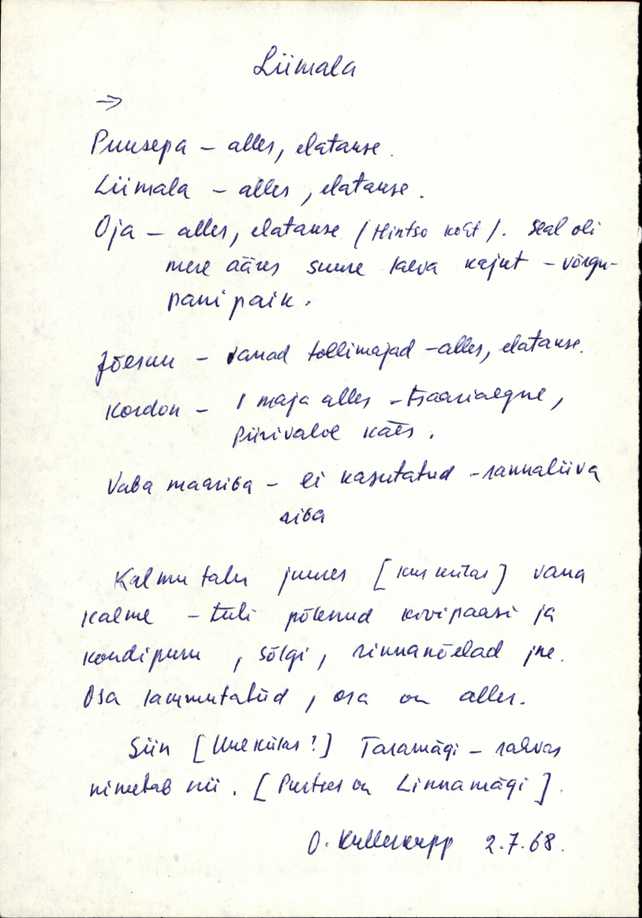 Liimala
→
Puusepa – alles, elatakse.
Liimala – alles, elatakse.
Oja – alles, elatakse (Hintso koht). Seal oli
mere ääres suure laeva kajut – võrgu-
panipaik.
Jõesuu – vanad tollimajad – alles, elatakse.
Kordon – 1 maja alles – tsaariaegne,
Piirivalve käes.
Vaba maariba – ei kasutatud – rannaliiva
riba
Kalmu talu juures [kus külas] vana
kalme – tuli põlenud kivipaasi ja
kondipuru, sõlgi, rinnanõelad jne.
Osa lammutatud, osa on alles.
Siin [Uuekülas?] Taramägi – rahvas
nimetab nii. [Purtses on Linnamägi].
O. Kullerkupp 2.7.68.